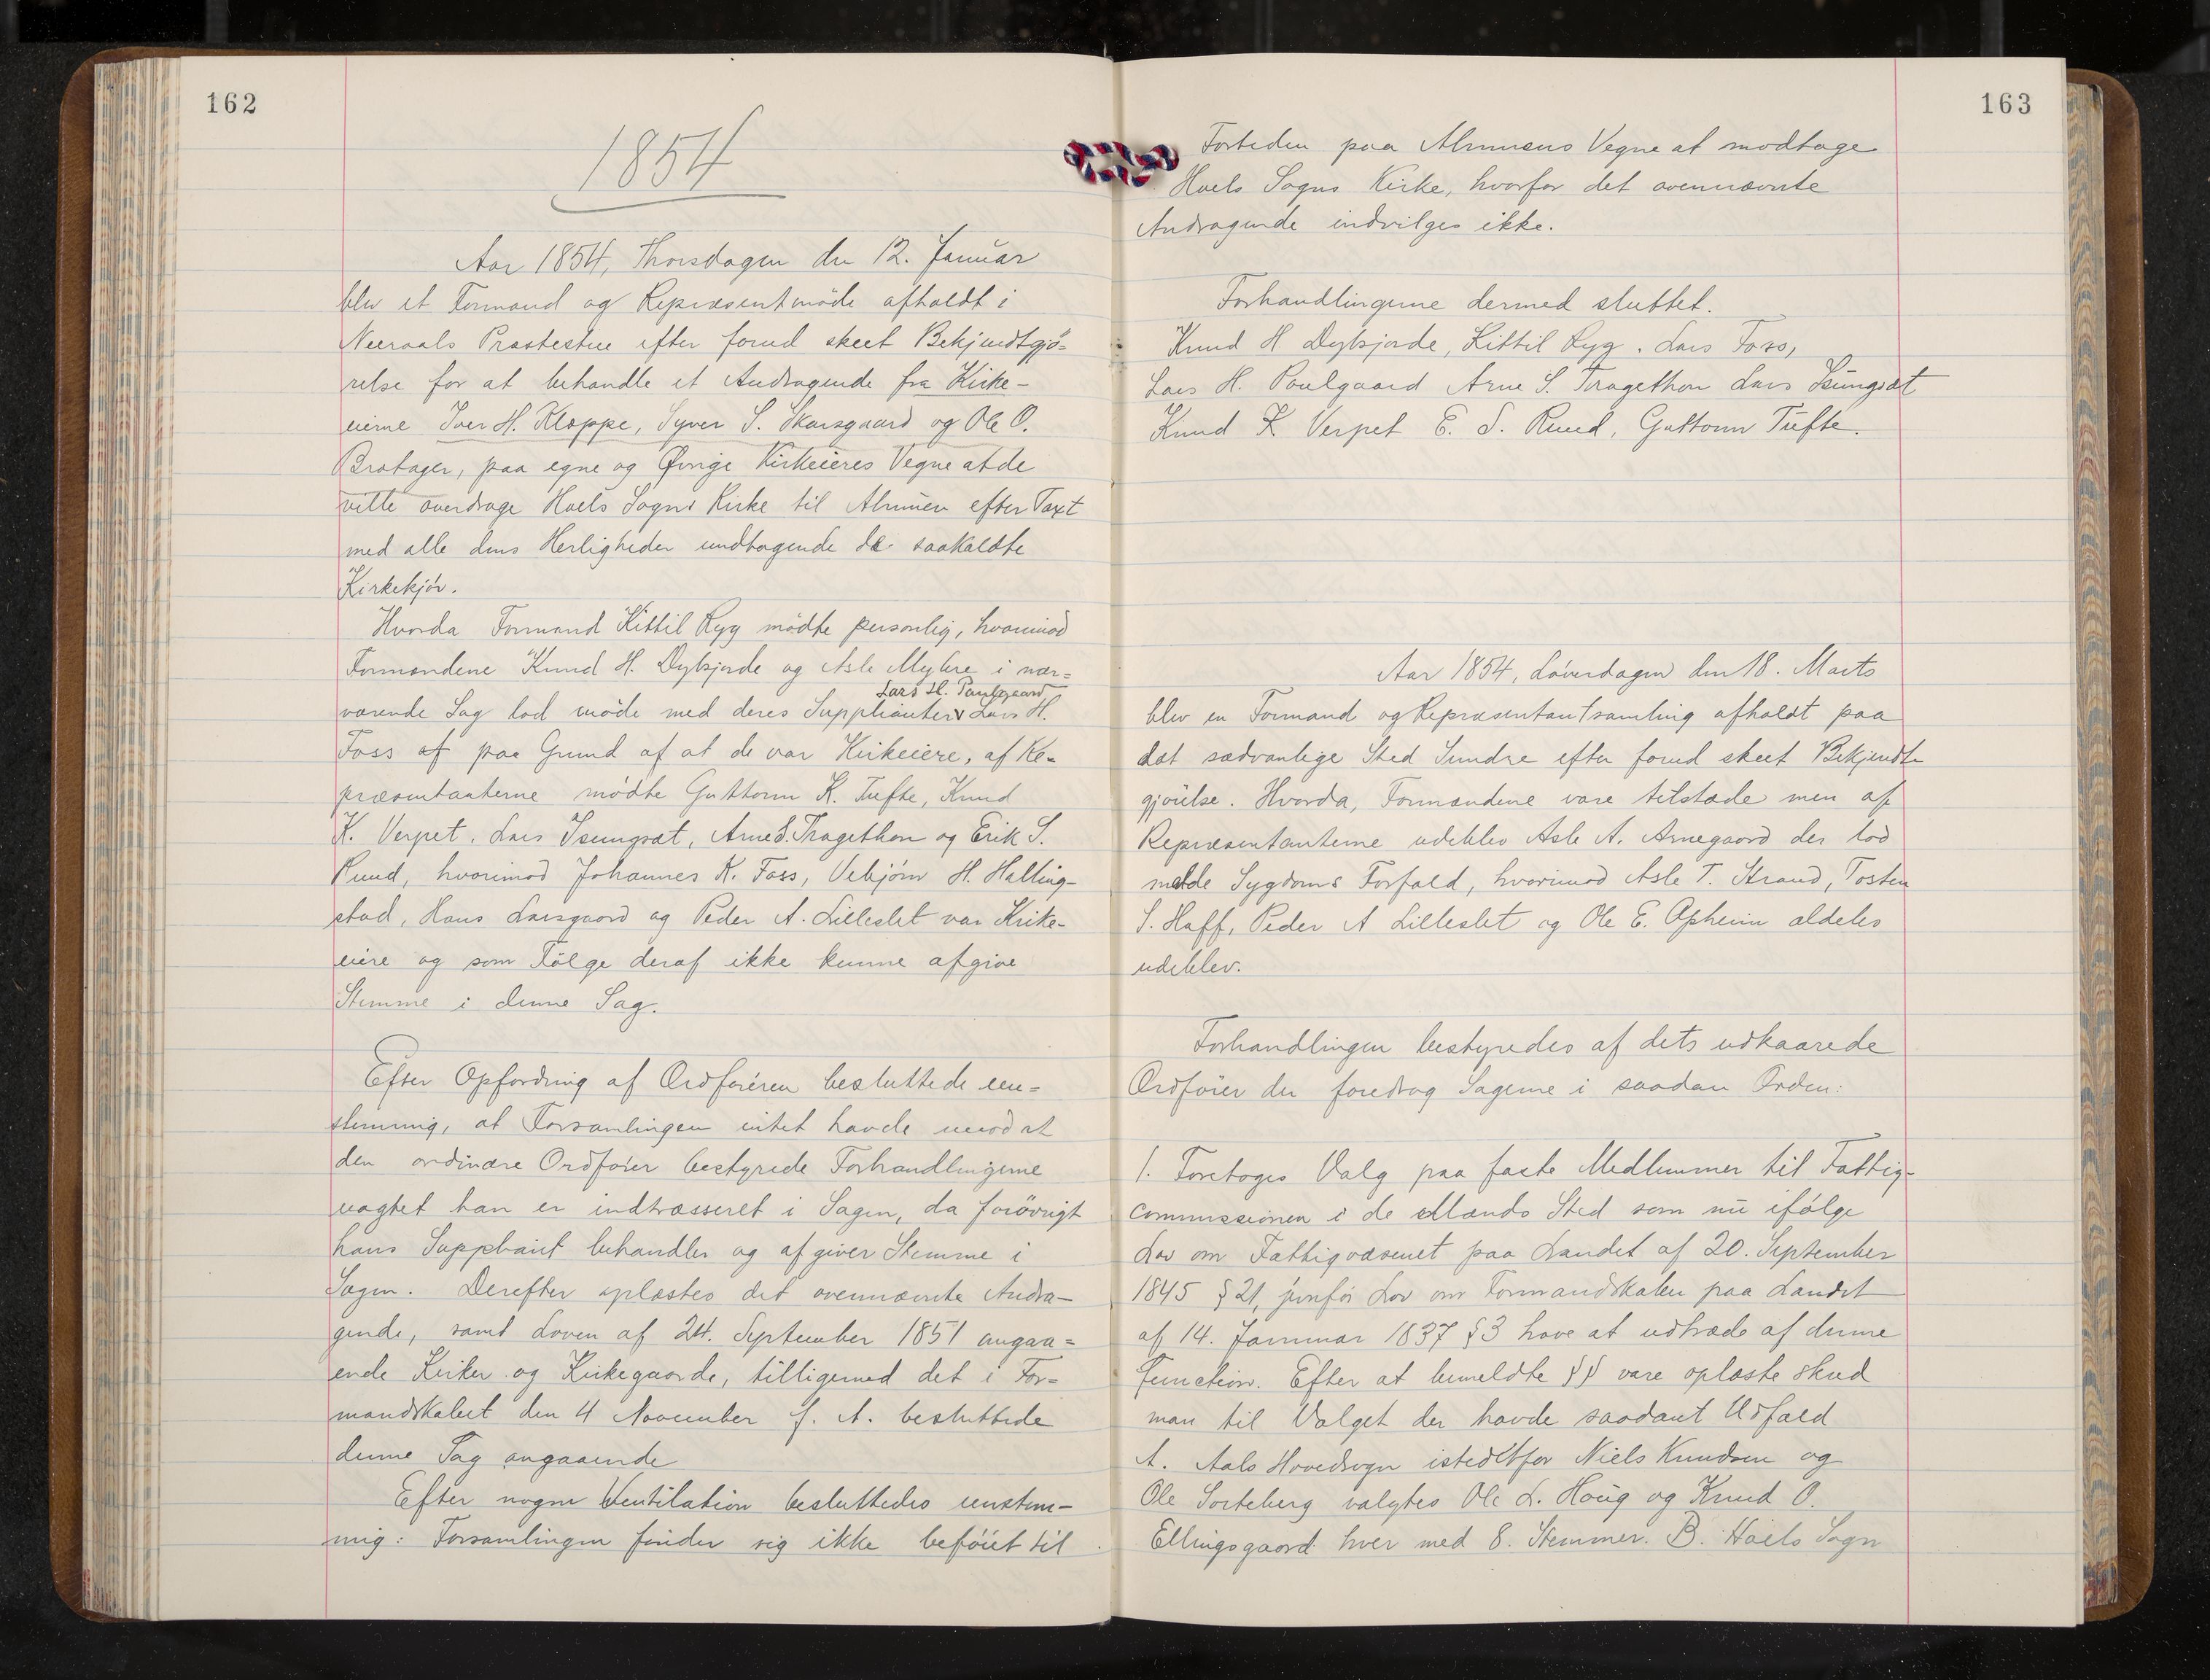 162
1854
Aar 1854, Thorsdagen den 12. Januar
blev et Formand og Repræsentmøde afholdt i
Neeraals Præstestue efter forud skeet Bekjendtgjö=
relse for at behandle et Andragende fra Kirke-
eierne Iver H. Kloppe, Syver S. Skarsgaard og Ole O.
Bratager, paa egne og Øvrige Kirkeieres Vegne at de
vilte overdrage Hoels Sogns Kirke til Almuen efter Taxt
med alle dens Herligheder undtagende de saakaldte
Kirkekjör.
Hvorda Formand Kittil Ryg mödte personlig, hvorimod
Formændene Knud H. Dybsjorde og Asle Myhre i nær=
Lars H. Paulgaard
værende Sag lod möde med deres Supplianter v Lars H.
Foss af paa Grund af at de var Kirkeiere, af Re-
præsentanterne mödte Guttorm K. Tufte, Knud
K. Verpet, Lars Isungsæt, Arne S. Tragethon og Erik S.
Ruud, hvorimod Johannes K. Foss, Vebjörn H. Halling-
stad, Hans Larsgaard og Peder A. Lilleslet var Kirke-
eiere og som Fölge deraf ikke kunne afgive
Stemme i denne Sag.
Efter Opfordring af Ordföreren besluttede een=
stemmig, at Forsamlingen intet havde imod at
den ordinære Ordförer bestyrede Forhandlingerne
uagtet han er indtræsseret i Sagen, da forövrigt
hans Suppliant behandler og afgiver Stemme i
Sagen. Derefter oplæstes det ovennævnte Andra-
gende, samt Loven af 24. September 1851 angaa=
ende Kirker og Kirkegaarde, tilligemed det i For=
mandskabet den 4 November f. A. besluttede
denne Sag angaaende
Efter nogen Ventilation besluttedes eenstem-
mig: Forsamlingen finder sig ikke beföiet til
163
Fortiden paa Almuens Vegne at modtage
Hoels Sogns Kirke, hvorfor det ovennævnte
Andragende indvilges ikke.
Forhandlingerne dermed sluttet.
Knud H Dybsjorde, Kittil Ryg. Lars Foss,
Lars H. Poulgaard Arne S. Tragethon Lars Isungsæt
Knud K Verpet E. S. Ruud, Guttorm Tufte.
Aar 1854, Löverdagen den 18. Marts
blev en Formand og Repræsentantsamling afholdt paa
dat sædvanlige Sted Sundre efter forud skeet Bekjendt-
gjörelse. Hvorda, Formændene vare tilstæde men af
Repræsentanterne udeblev Asle A. Arnegaard der lod
melde Sygdoms Forfald, hvorimod Asle T. Strand, Tosten
S. Haff, Peder A Lilleslet og Ole E. Opheim aldeles
udeblev.
Forhandlingen bestyredes af dets udkaarede
Ordförer der foredrog Sagerne i saadan Orden:
1. Foretoges Valg paa faste Medlemmer til Fattig-
commissionen i de Mænds Sted som nu ifölge
Lov om Fattigvæsenet paa Landet af 20. September
1845 § 21, jvnför Lov om Formandskaber paa Landet
af 14. Januar 1837 § 3 have at udtræde af denne
Function. Efter at bemeldte §§ vare oplæste skred
man til Valget der havde saadant Udfald
A. Aals Hovedsogn istedetfor Niels Knudsen og
Ole Sorteberg valgtes Ole L. Houg og Knud O.
Ellingsgaard hver med 8. Stemmer. B. Hoels Sogn